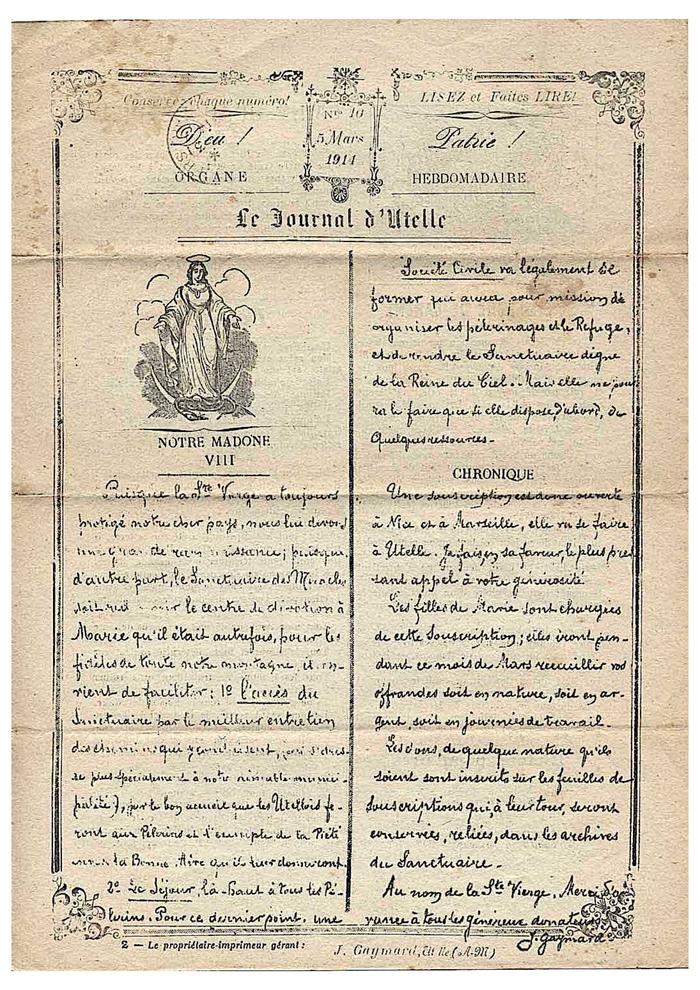 Conservez chaque numéro!
LISEZ et Faites LIRE!
Nro 10
5 Mars
1914
Dieu !
Patrie !
ORGANE
HEBDOMADAIRE
Le Journal d'Utelle
NOTRE MADONE
VIII
Puisque la Ste Vierge a toujours
protégé notre cher pays, nous lui devons
de ; puisque,
d'autre part, le Sanctuaire des Miracles
le centre de dévotion à
Marie qu'il était autrefois, pour les
fidèles de toute notre montagne, il con-
vient de faciliter : 1º l'accès du
Sanctuaire par le meilleur entretien
des chemins qui y conduisent,
se plus spécialement à notre aimable munici-
palité), par le bon accueil que les Utellois fe-
ront aux Pèlerins et l'exemple de la Piété
la Bonne Mère qu'ils leur donneront.
2º Le Séjour, là-haut à tous les Pè-
lerins. Pour ce dernier point, une
Société Civile va légalement se
former qui aura pour mission de
organiser les pèlerinages et le Refuge,
et de rendre le Sanctuaire digne
de la Reine du Ciel. Mais elle ne pour
ra le faire que si elle dispose, d'abord, de
Quelques ressources.
CHRONIQUE
Une souscription est donc ouverte
à Nice et à Marseille, elle va se faire
à Utelle. Je fais, en sa faveur, le plus pres
sant appel à votre générosité
Les filles de Marie sont chargées
de cette Souscription; elles iront pen-
dant ce mois de Mars recueillir vos
offrandes soit en nature, soit en ar-
gent, soit en journées de travail.
Les dons, de quelque nature qu'ils
soient sont inscrits sur les feuilles de
Souscriptions qui, à leur tour, seront
conservées, reliées, dans les archives
du Sanctuaire.
Au nom de la Ste Vierge, Merci d'a
vance à tous les généreux donateurs.
J. Gaymard
2 — Le propriétaire-imprimeur gérant :
J. Gaymard, (A-M)